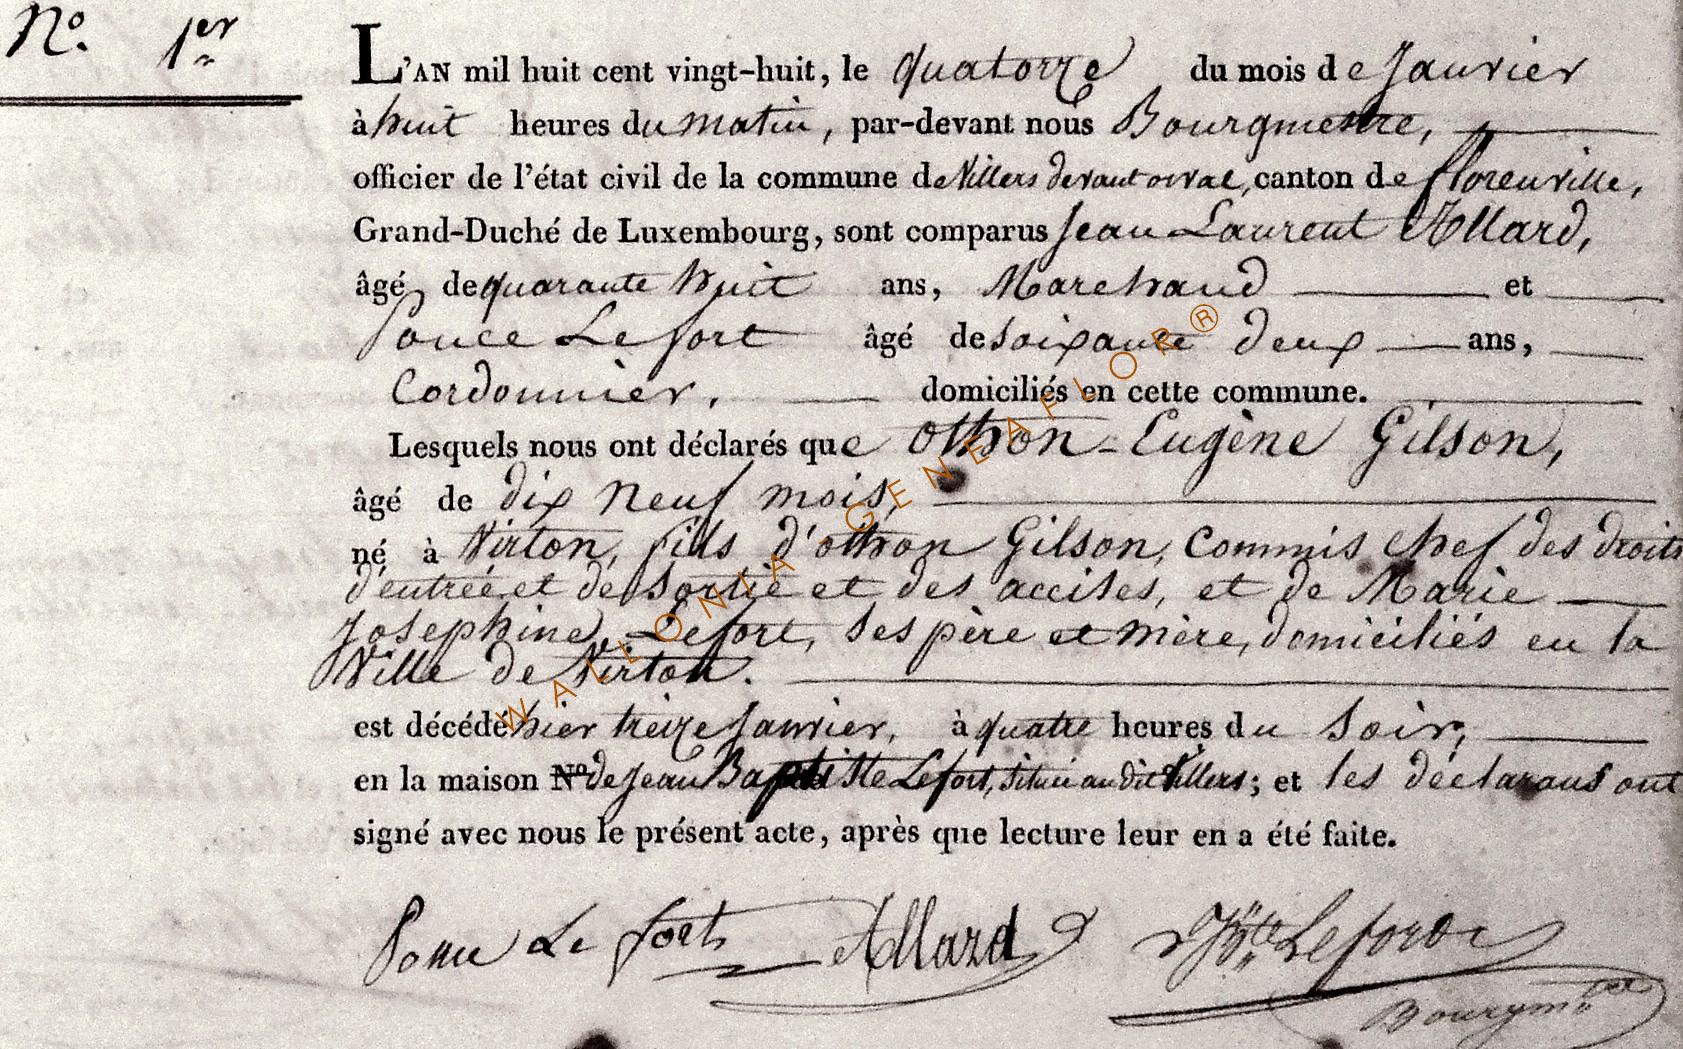 No. 1er
L'AN mil huit cent vingt-huit, le quatorze du mois de Janvier
à huit heures du matin, par-devant nous Bourgmestre,
officier de l'état civil de la commune de Villers devant orval, canton de florenville,
Grand-Duché de Luxembourg, sont comparus Jean Laurent Allard,
âgé de quarante huit ans, Marchand et
Ponce Lefort âgé de soixante deux ans,
Cordonnier, domiciliés en cette commune.
Lesquels nous ont déclarés que Othon-Eugène Gilson,
âgé de dix neuf mois,
né à Virton, fils d'othon Gilson, Commis chef des droits
d'entrée et de Sortie et des accises, et de Marie
Josephine Lefort, ses père et mère, domiciliés en la
Ville de Virton.
est décédé hier treize Janvier, à quatre heures du soir,
en la maison No de Jean Baptiste Lefort, située au dit Villers; et les déclarans ont
signé avec nous le présent acte, après que lecture leur en a été faite.
Ponce Le fort Allard JBte Lefort
Bourgmtre
WALLONIA-GENEAFLOR®